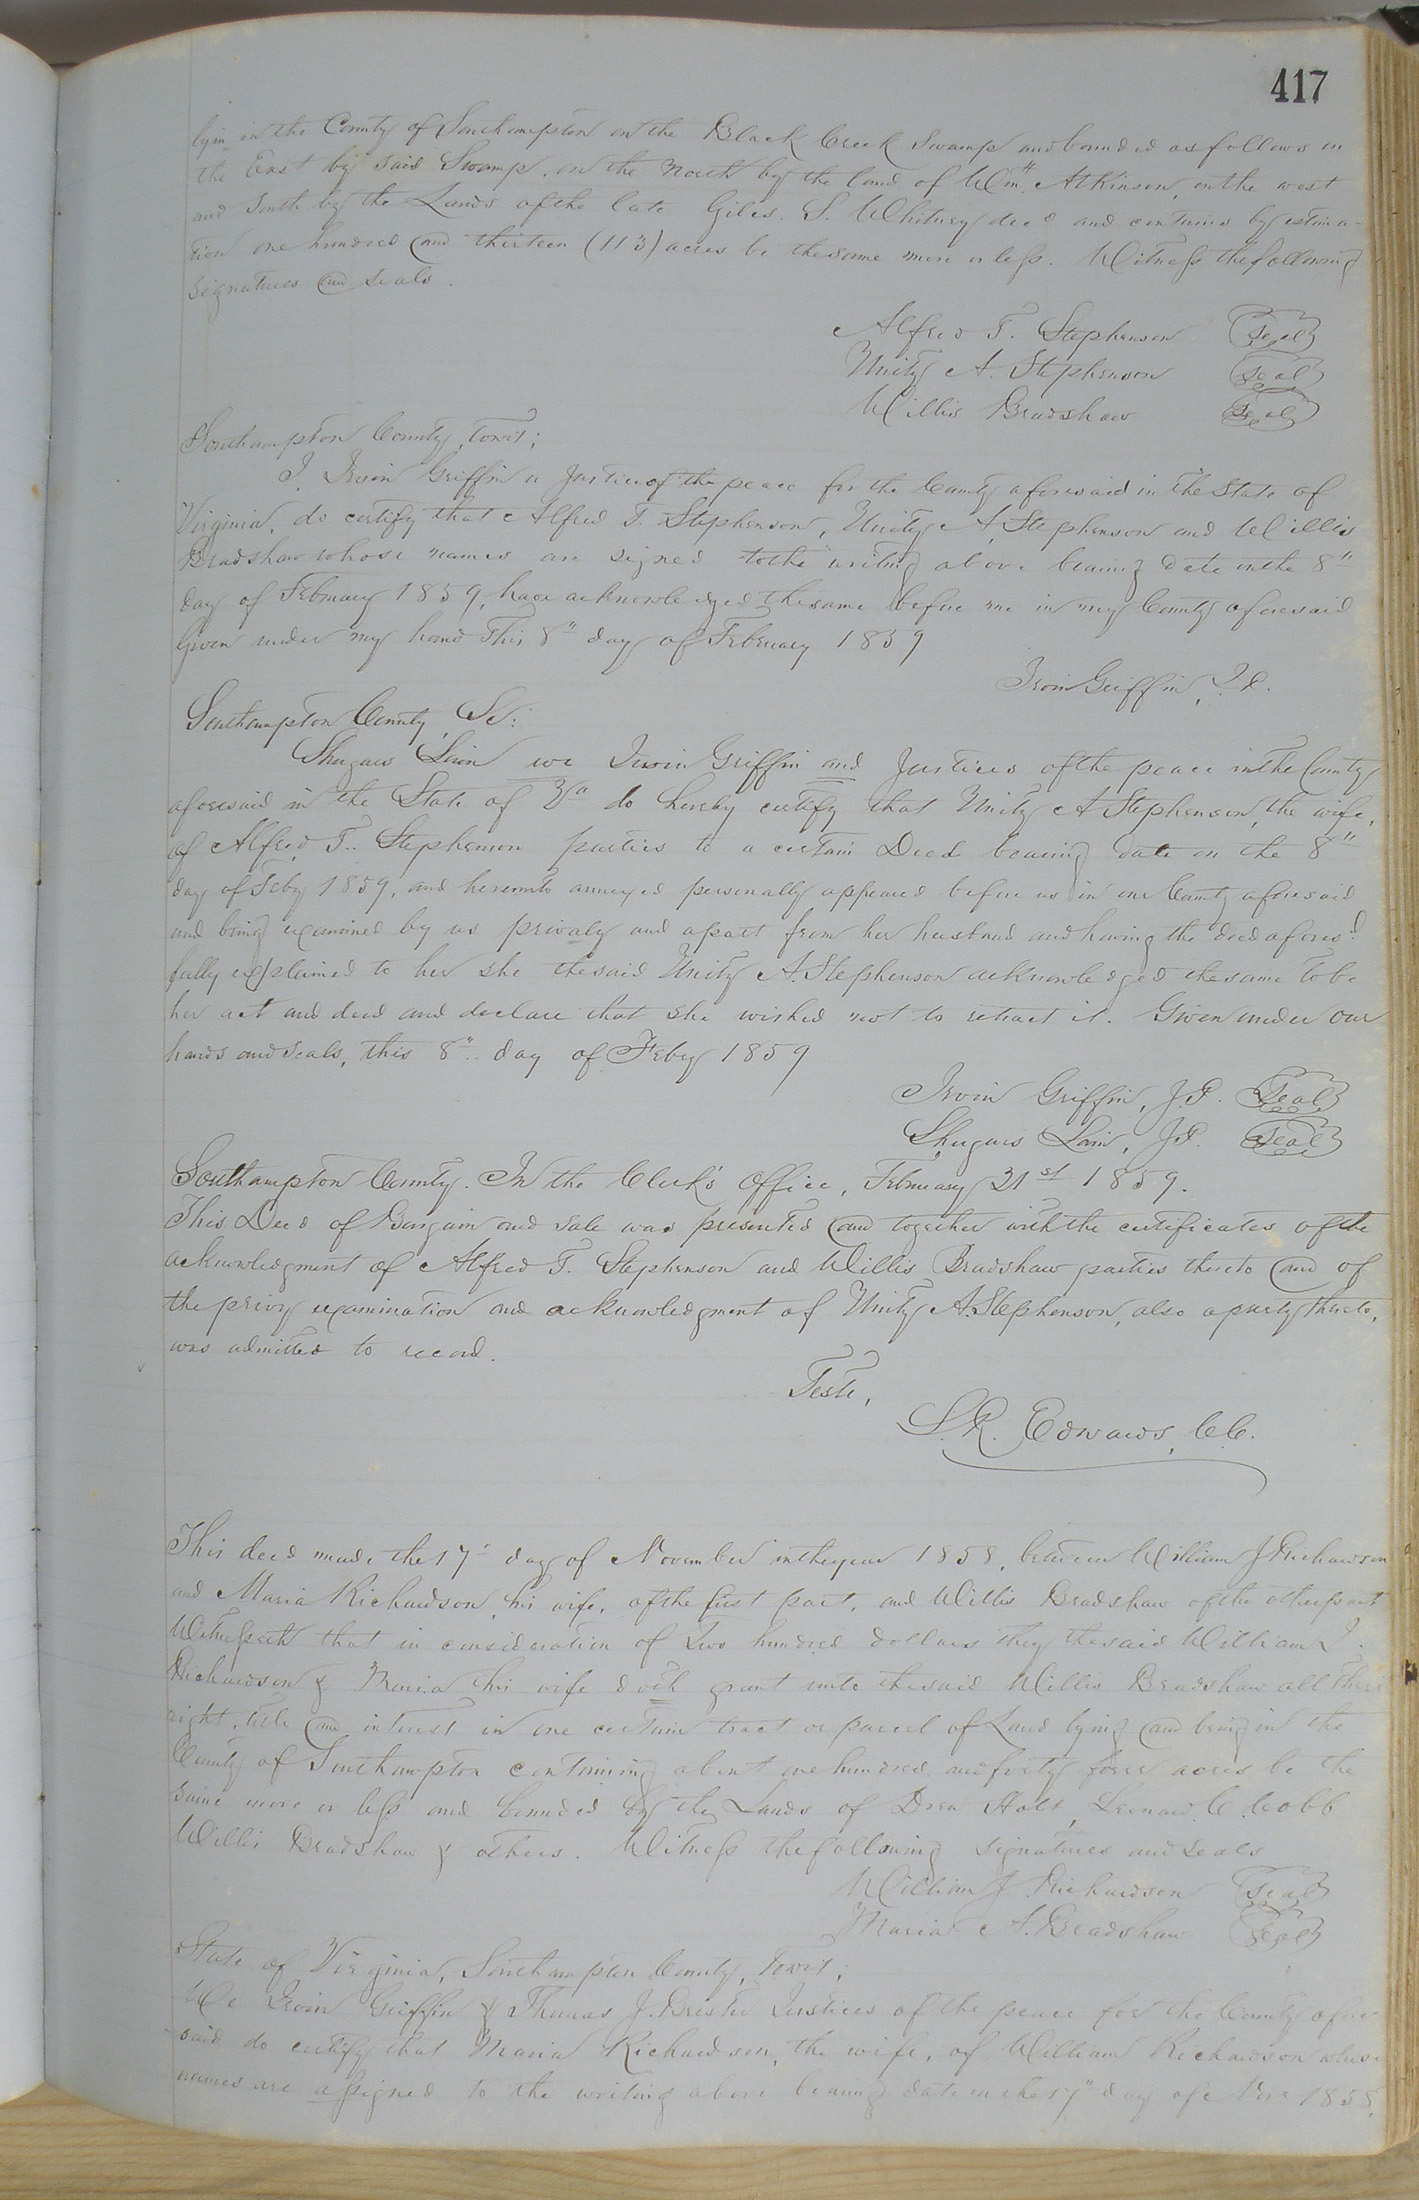 417
lyin in the County of Southampton on the Black Creek Swamp and bounded as follows on
the East by said Swamp, on the North by the land of Wm. Atkinson, on the west
and South by the Lands of the late Giles. S. Whitney decd and contains by estima-
tion one hundred and thirteen (113) acres be the same more or less. Witness the following
signatures and seals.
Alfred T. Stephenson Seal
Unity A. Stephenson Seal
Willis Bradshaw Seal
Southampton County, towit;
I. Irvin Griffin a Justice of the peace for the County aforesaid in the State of
Virginia, do certify that Alfred T. Stephenson, Unity A. Stephenson and Willis
Bradshaw whose names are signed to the writing above bearing date on the 8"
day of February 1859, have acknowledged the same before me in my County aforesaid
Given under my hand This 8" day of February 1859
Irvin Griffin, J.P.
Southampton County Sc:
Shugars Lain we Irvin Griffin and Justices of the peace in the County
aforesaid in the State of Va do hereby certify that Unity A Stephenson, the wife,
of Alfred T. Stephenson parties to a certain Deed bearing date on the 8"
day of Feby 1859, and hereunto annexed personally appeared before us in our County aforesaid
and being examined by us privaly and apart from her husband and having the deed aforesd
fully explained to her she the said Unity A. Stephenson acknowledged the same to be
her act and deed and declare that she wished not to retract it. Given under our
hands and seals, this 8" day of Feby 1859
Irvin Griffin, J.P. Seal
Shugars Lain, J.P. Seal
Southampton County. In the Clerk's Office, February 21st 1859.
This Deed of Bargain and Sale was presented and together with the certificates of the
acknowledgment of Alfred T. Stephenson and Willis Bradshaw parties thereto and of
the privy examination and acknowledgment of Unity A. Stephenson, also a party thereto,
was admitted to record.
Teste,
L.R. Edwards, C.C.
This deed made the 17" day of November in the year 1858, between William J Richardson
and Maria Richardson, his wife, of the first part, and Willis Bradshaw of the other part
Witnesseth that in consideration of two hundred dollars they the said William J.
Richardson & Maria his wife doth grant unto the said Willis Bradshaw all their
right, title and interest in one certain tract or parcel of Land lying and being in the
County of Southampton containing about one hundred and forty four acres be the
same more or less and bounded by the Lands of Drew Holt, Leonard C. Cobb
Willis Bradshaw & others. Witness the following signatures and seals
William J Richardson Seal
Maria A. Bradshaw Seal
State of Virginia, Southampton County, towit;
We Irvin Griffin & Thomas J. Justices of the peace for the County afore
said do certify that Maria Richardson, the wife, of William Richardson whose
names are assigned to the writing above bearing date on the 17" day of Nov 1858,